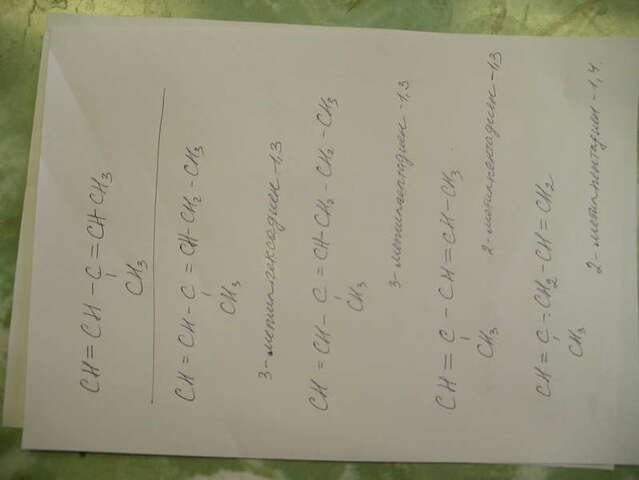 CH=CH-C=CHCH3
CH3
CH=CH-C=CH-CH2-CH3
CH3
3-метилгексадиен-1,3
CH=CH-C=CH-CH2-CH2-CH3
CH3
3-метилгептадиен-1,3
CH=C-CH=CH-CH3.
CH3
2-метилпентадиен-1,3
CH=C-CH2-CH=CH2
CH3
2-метилпентадиен-1,4.